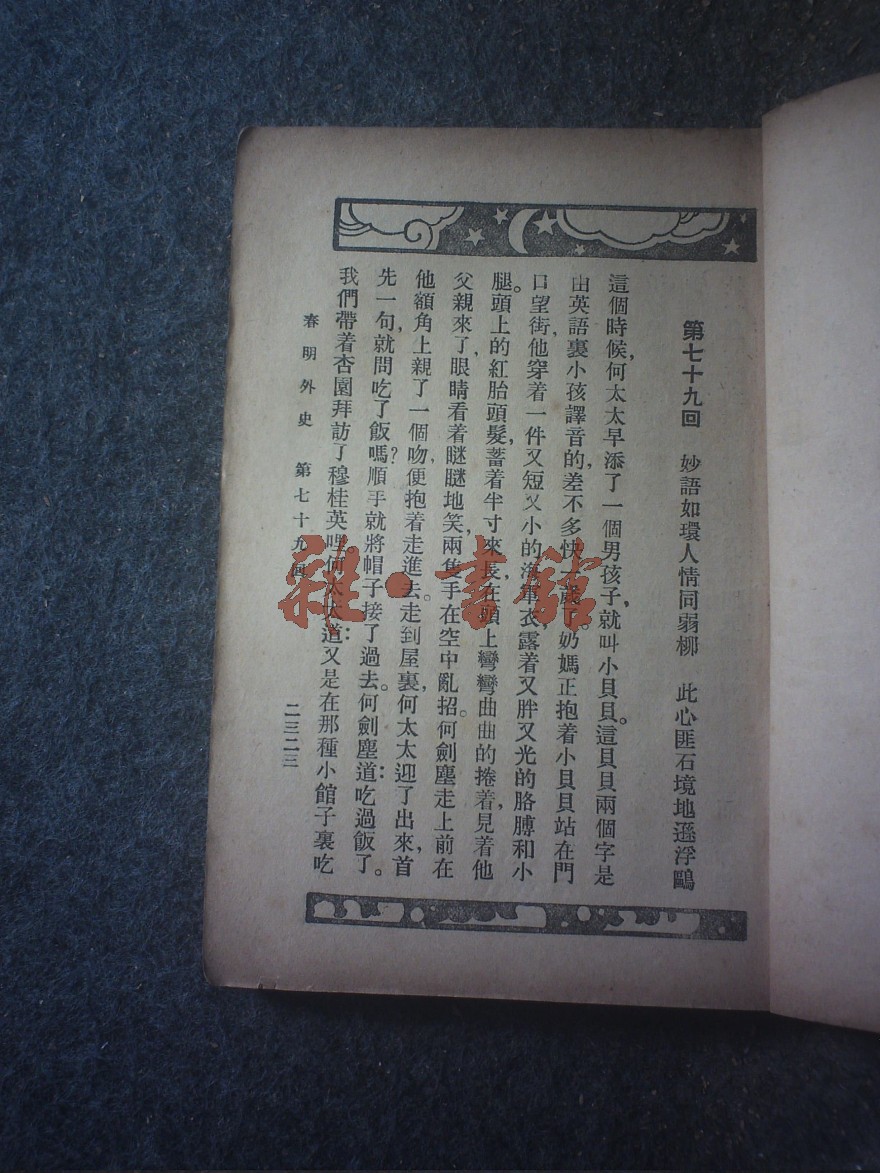 第七十九回　妙語如環人情同弱柳　此心匪石境地遜浮鷗
這個時候，何太太早添了一個男孩子，就叫小貝貝。這貝貝兩個字是
由英語裏小孩譯音的，差不多快一歲了。奶媽正抱着小貝貝站在門
口望街，他穿着一件又短又小的海軍衣，露着又胖又光的胳膊和小
腿。頭上的紅胎頭髮，蓄着半寸來長，在頭上彎彎曲曲的捲着，見着他
父親來了，眼睛看着瞇瞇地笑，兩隻手在空中亂招。何劍塵走上前，在
他額角上親了一個吻，便抱着走進去。走到屋裏，何太太迎了出來，首
先一句，就問吃了飯嗎？順手就將帽子接了過去。何劍塵道：吃過飯了。
我們帶着杏園拜訪了穆桂英哩。何太太道：又是在那種小館子裏吃
春明外史　第七十九回　二三二三
雜·書館